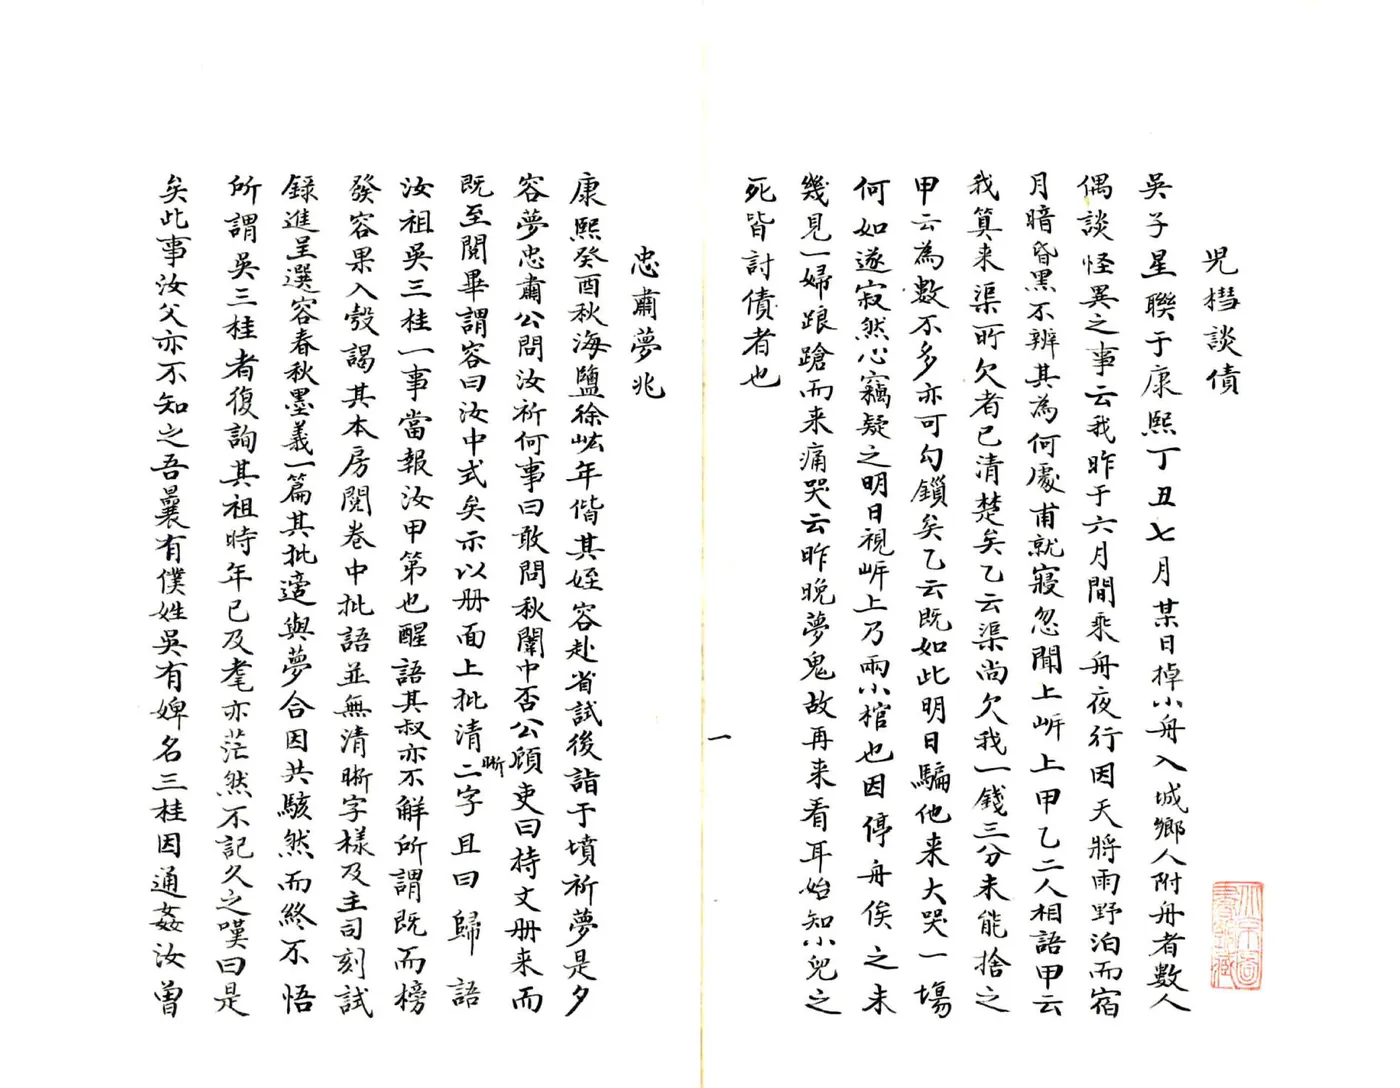 児槥談債
吳子星聯于康熙丁丑七月某日掉小舟入城鄉人附舟者數人
偶談怪異之事云我昨于六月間乘舟夜行因天將雨野泊而宿
月暗昏黑不辨其為何處甫就寢忽聞上岍上甲乙二人相語甲云
我算来渠所欠者已清楚矣乙云渠尚欠我一錢三分未能捨之
甲云為數不多亦可勾鎖矣乙云既如此明日騙他来大哭一塲
何如遂寂然心竊疑之明日視岍上乃兩小棺也因停舟俟之未
幾見一婦踉蹌而来痛哭云昨晚夢鬼故再来看耳始知小兒之
死皆討債者也
一
忠肅夢兆
康熙癸酉秋海鹽徐岦年偕其姪容赴省試後詣于墳祈夢是夕
容夢忠肅公問汝祈何事曰敢問秋闈中否公顧吏曰持文册来而
既至閱畢謂容曰汝中式矣示以册面上批清晰二字且曰歸語
汝祖吳三桂一事當報汝甲第也醒語其叔亦不解所謂既而榜
發容果入彀謁其本房閱卷中批語並無清晰字様及主司刻試
錄進呈選容春秋墨義一篇其批適與夢合因共駭然而終不悟
所謂吳三桂者復詢其祖時年已及耄亦茫然不記久之嘆曰是
矣此事汝父亦不知之吾曩有僕姓吳有婢名三桂因通姦汝曾